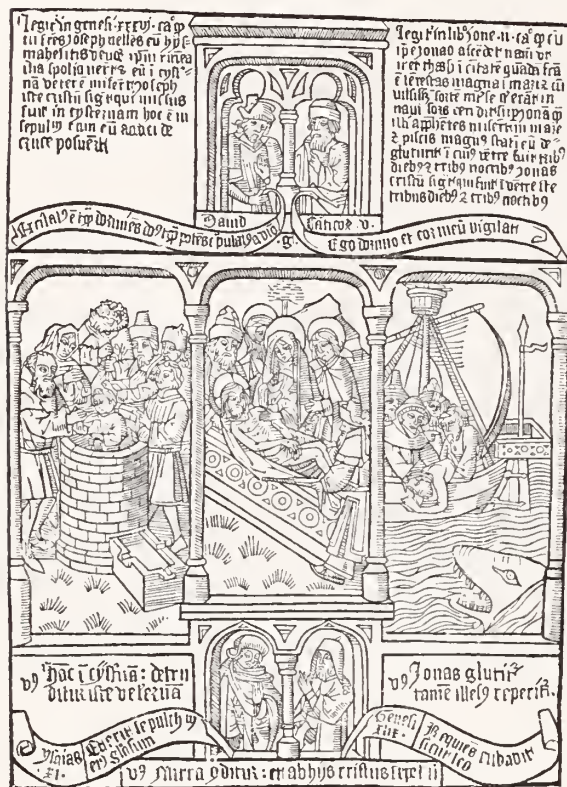 Legit in genesi xxxvij ca qp
cu fres Joseph vellet eu hys-
mahelitis vede ipm tunica
sua spoliavert et eu i cyst'-
na vetere miserut Joseph
iste cristu sig't qui missus
fuit in cysternam hoc e in
sepulcru cum eu
cruce posuerut
Legit' in lib' Jone ii ca qp cu
ipe Jonas ascedet navi ut
iret i civitate
e tepestas magna i mari et cu
sorte mise set' erat in
navi sors cecidit sup Jona qp
illi apphedetes miserut in mare
et piscis magnus stati eu de-
glutivit i cui' vetre fuit trib'
dieb' et trib' noctib' Jonas
cristu sig't qui fuit i vetre tre
tribus dieb' et trib' noctib'
David
Caticor v
Excitat' e tqp dormies dns tqp potes crapulat' a vino
.g.
Ego dormio et cor meu vigilat
v' Hac i cysterna: detru
ditur iste veterna
v' Jonas glutit'
tame illes' reperit'
Ysaias
XI
Et erit sepulchru
ei' gliosum
Genesi
XLIX
Requies cubavit
sicut leo
v' Mirra coditur: et ab hijs cristus sepelit'